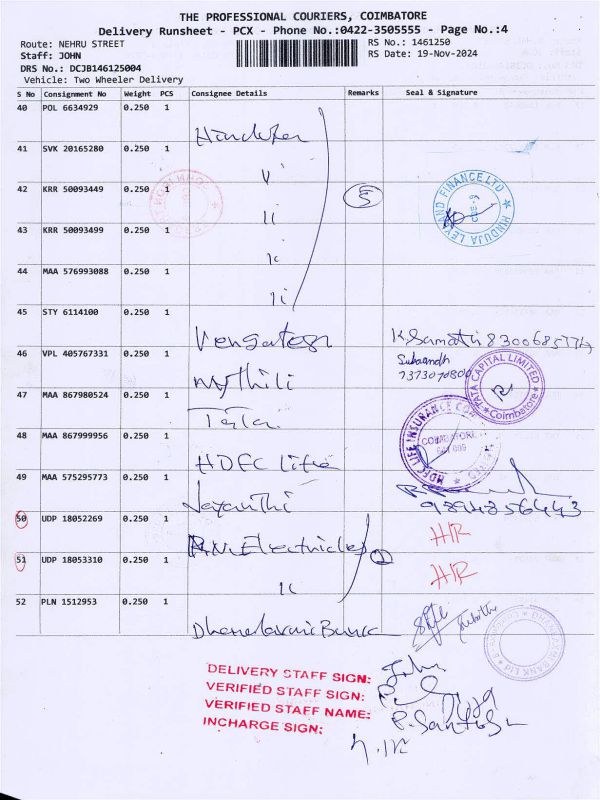 THE PROFESSIONAL COURIERS, COIMBATORE
Delivery Runsheet - PCX - Phone No.:0422-3505555 - Page No.:4
Route: NEHRU STREET RS No.: 1461250
Staff: JOHN RS Date: 19-Nov-2024
DRS No.: DCJB146125004
Vehicle: Two Wheeler Delivery
S No Consignment No Weight PCS Consignee Details Remarks Seal & Signature
40 POL 6634929 0.250 1
41 SVK 20165280 0.250 1
42 KRR 50093449 0.250 1 5
HINDUJA LEYLAND FINANCE LTD
43 KRR 50093499 0.250 1
44 MAA 576993088 0.250 1
45 STY 6114100 0.250 1
Vengatesh
46 VPL 405767331 0.250 1
Mythili
TATA CAPITAL LIMITED
Coimbatore
47 MAA 867980524 0.250 1
Tata
48 MAA 867999956 0.250 1
HDFC Life
HDFC LIFE INSURANCE
COIMBATORE
49 MAA 575295773 0.250 1
Jayanthi
9894856443
50 UDP 18052269 0.250 1 HR
Electricles 2
51 UDP 18053310 0.250 1 HR
52 PLN 1512953 0.250 1
DHANLAXMI BANK LTD
DELIVERY STAFF SIGN: John
VERIFIED STAFF SIGN:
VERIFIED STAFF NAME: P. Santosh
INCHARGE SIGN: